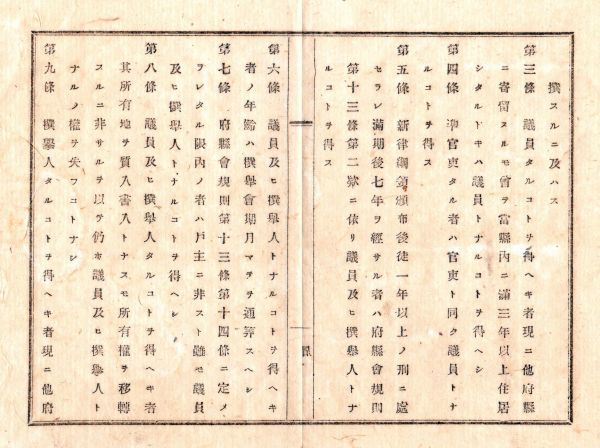 撰スルニ及ハス
第三條 議員タルコトヲ得ヘキ者現ニ他府縣
ニ寄留スルモ曾テ當縣內ニ滿三年以上住居
シタルトキハ議員トナルコトヲ得ヘシ
第四條 準官吏タル者ハ官吏ト同ク議員トナ
ルコトヲ得ス
第五條 新律綱領頒布後徒一年以上ノ刑ニ處
セラレ滿期後七年ヲ經サル者ハ府縣會規則
第十三條第二欵ニ依リ議員及ヒ撰擧人トナ
ルコトヲ得ス
第六條 議員及ヒ撰擧人トナルコトヲ得ヘキ
者ノ年齡ハ撰擧會期月マテヲ通算スヘシ
第七條 府縣會規則第十三條第十四條ニ定メ
ラレタル限內ノ者ハ戶主ニ非スト雖モ議員
及ヒ撰擧人トナルコトヲ得ヘシ
第八條 議員及ヒ撰擧人タルコトヲ得ヘキ者
其所有地ヲ質入書入トナスモ所有權ヲ移轉
スルニ非サルヲ以テ仍ホ議員及ヒ撰擧人ト
ナルノ權ヲ失フコトナシ
第九條 撰擧人タルコトヲ得ヘキ者現ニ他府